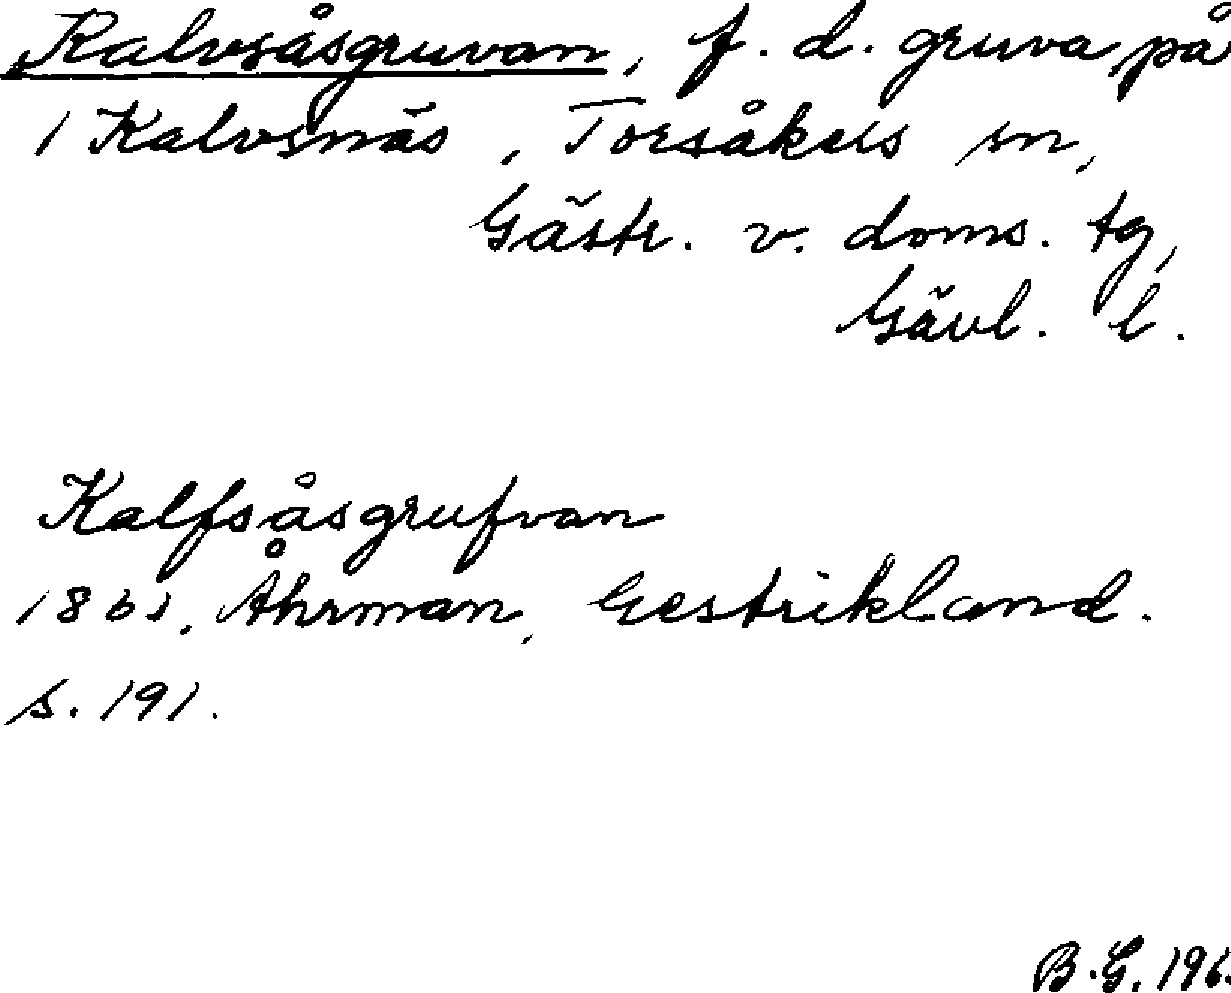 Kalvsåsgruvan, f. d. gruva på
1 Kalvsnäs, Torsåkers sn,
Gästr. v. doms. tg,
Gävl. l.
Kalfsåsgrufvan
1861, Åhrman, Gestrikland.
s. 191.
B.G. 196